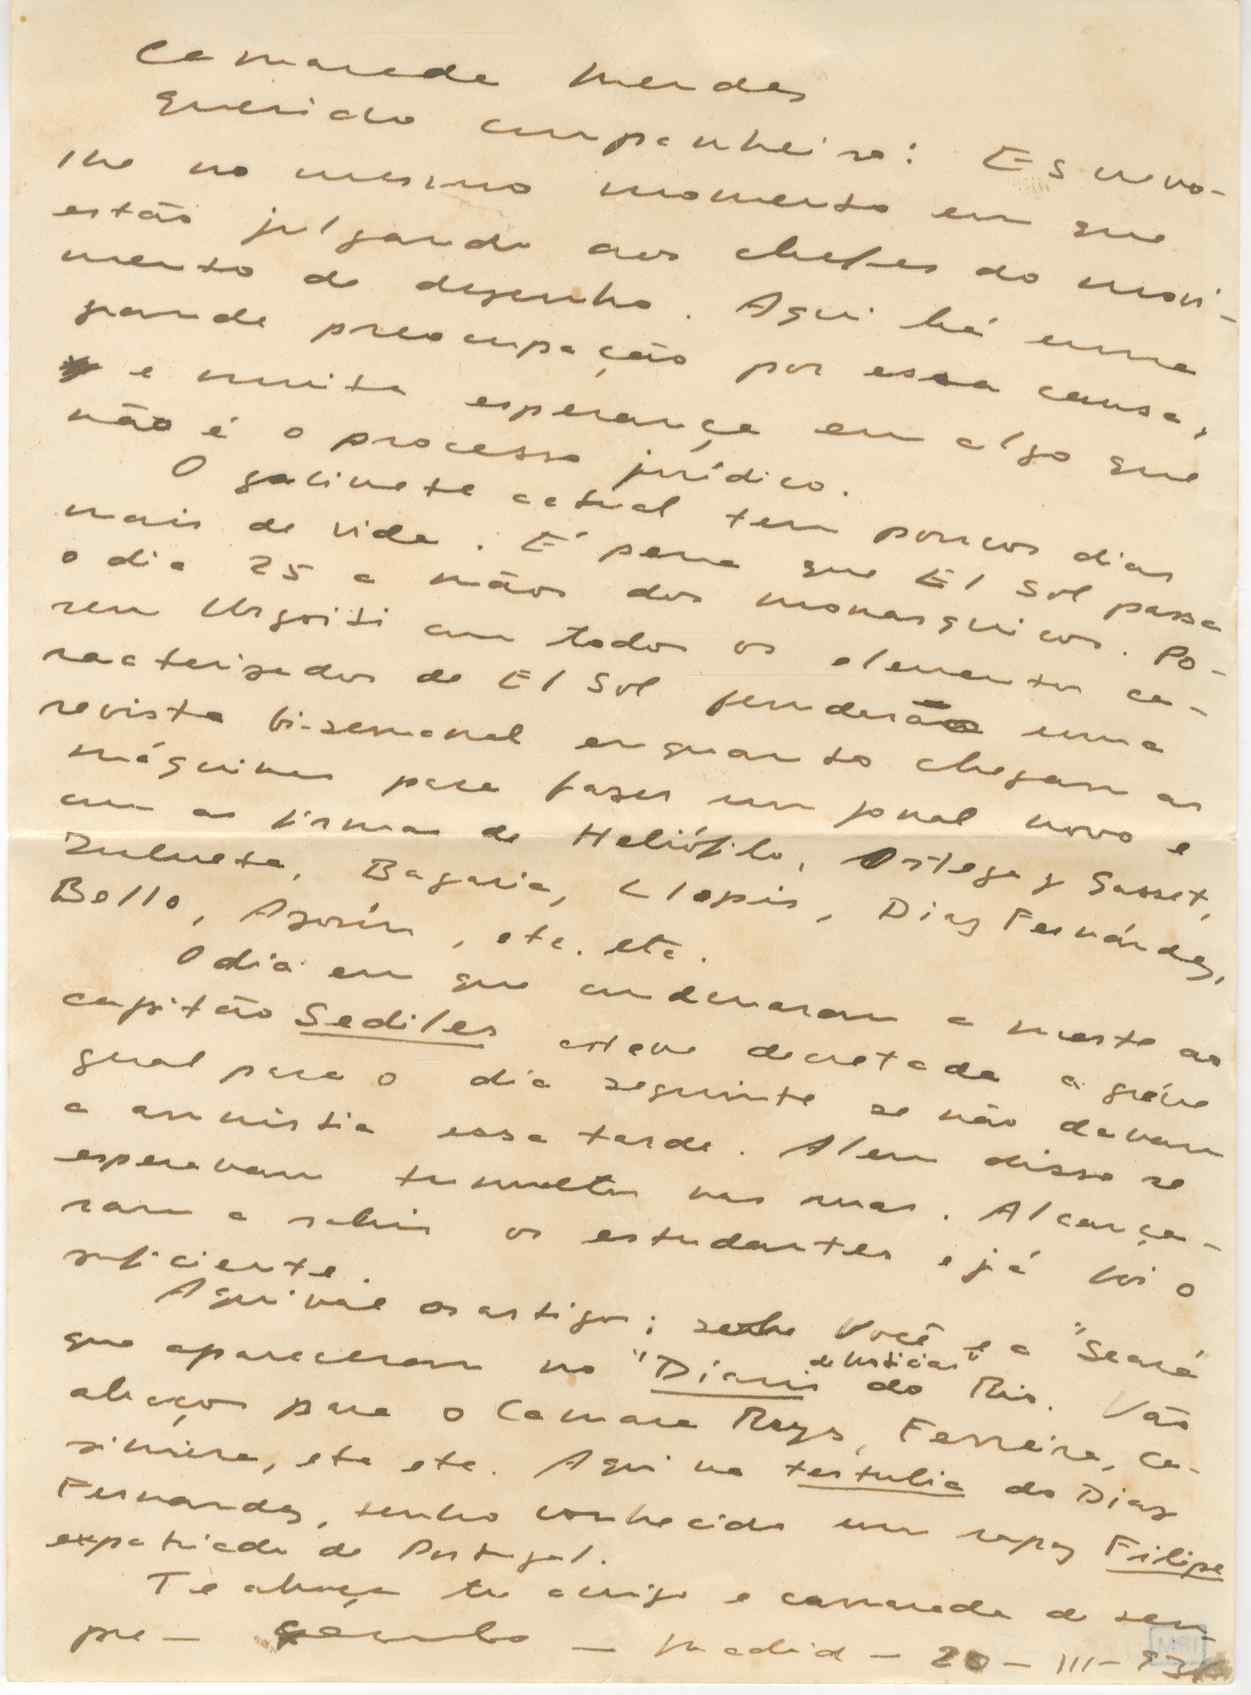 Camarada Mendes
Querido companheiro: Escrevo-
lhe no mesmo momento em que
estão julgando aos chefes do movi-
mento de dezembro. Aqui há uma
grande preocupação por essa causa,
e muita esperança em algo que
não é o processo jurídico.
O gabinete actual tem poucos dias
mais de vida. É pena que El Sol passa
o dia 25 a mãos dos monarquicos. Po-
rem Urgoiti com todos os elementos ca-
racterizados de El Sol fundarão uma
revista bi-semanal enquanto chegam as
máquinas para fazer um jornal novo e
com as firmas de Heliófilo, Ortega y Gasset,
Zulueta, Bagaria, Llopis, Diaz Fernández,
Bello, Azorín, etc. etc.
O dia em que condenaram a morte ao
capitão Sediles esteve decretada a gréve
geral para o dia seguinte se não davam
a amnistia essa tarde. Alem disso se
esperavam tumultos nas ruas. Alcança-
ram a sahir os estudantes e já foi o
suficiente.
Aqui vae os artigos; Você e a "Seara
que apareceram no "Diario de Noticias" do Rio. Vão
abraços para o Camara Reys, Ferreira, Ca-
simiro, etc etc. Aqui na tertulia do Diaz
Fernandez, tenho conhecido um rapaz Filipe
expatriado de Portugal.
Te abraça tu amigo e camarada de sem
pre — — Madrid — 20 — III — 931
MSI